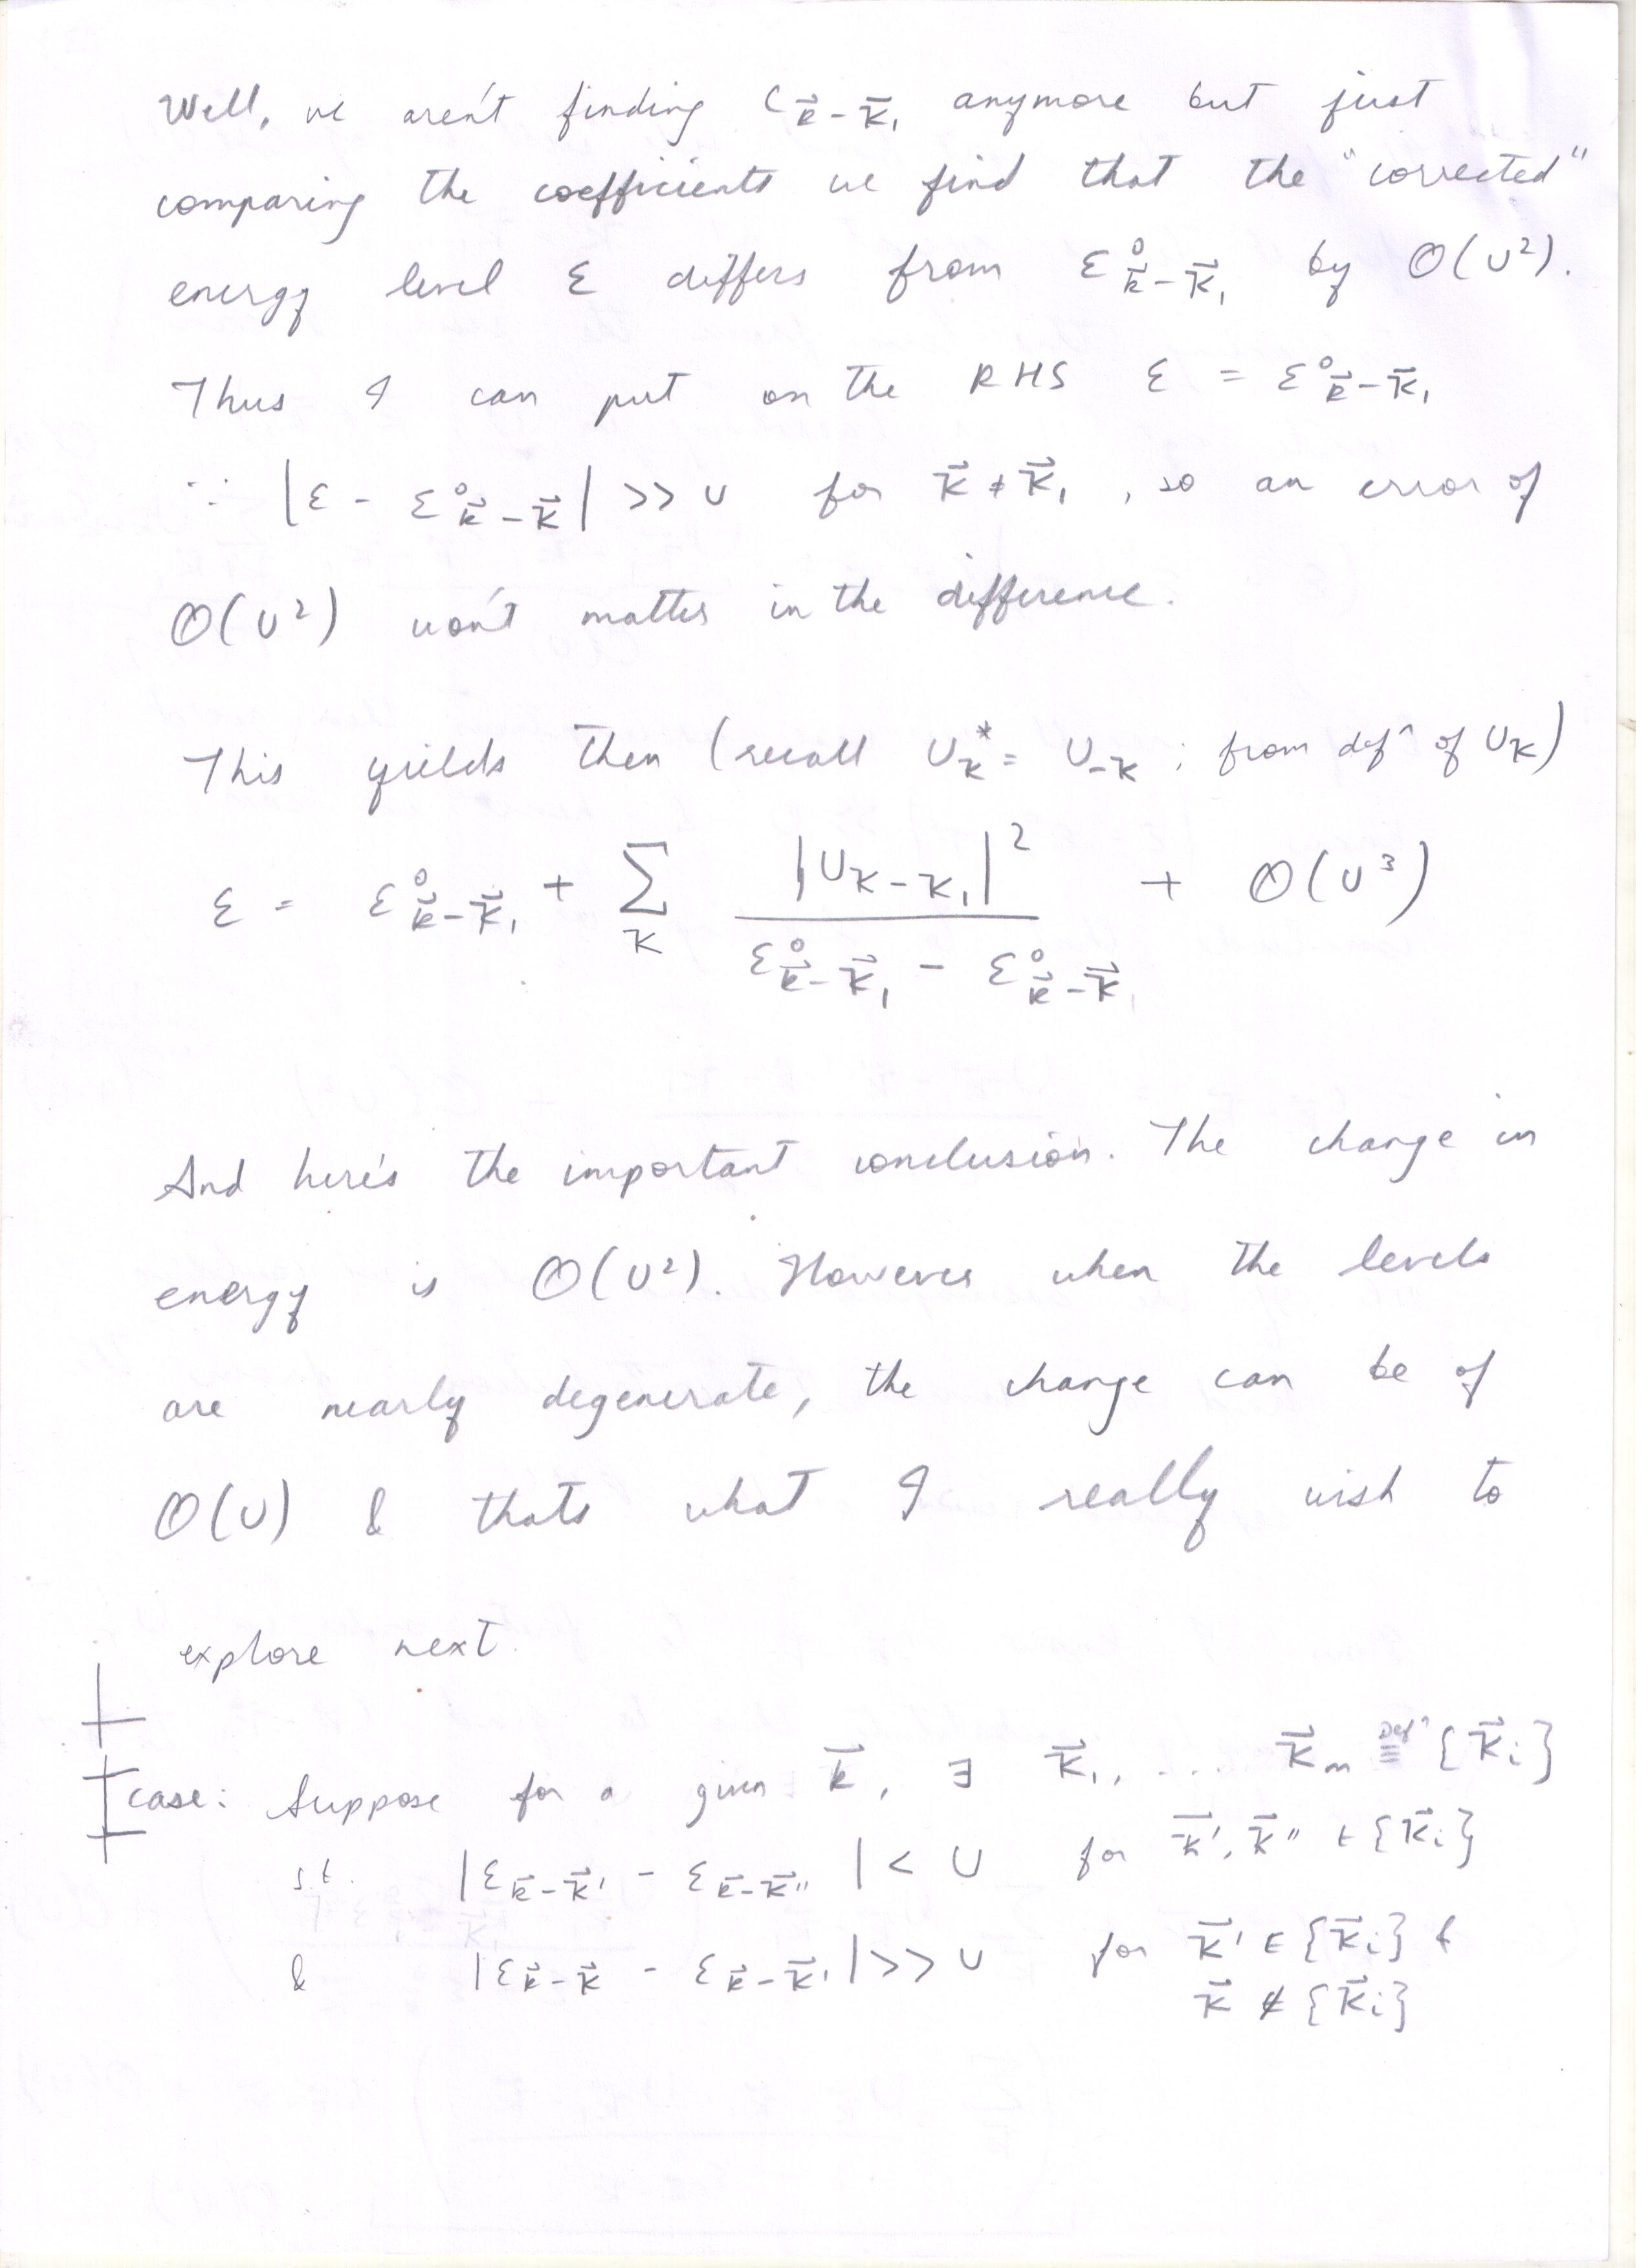 Well, we aren't finding C_{\vec{k}-\vec{K}_1} anymore but just
comparing the coefficients we find that the "corrected"
energy level ε differs from ε^0_{\vec{k}-\vec{K}_1} by O(U²).
Thus I can put on the RHS ε = ε^0_{\vec{k}-\vec{K}_1}
∵ |ε - ε^0_{\vec{k}-\vec{K}}| >> U for \vec{K} ≠ \vec{K}_1, so an error of
O(U²) won't matter in the difference.
This yields then (recall U_K^* = U_{-K} ; from def^n of U_K)
ε = ε^0_{\vec{k}-\vec{K}_1} + \sum_K \frac{|U_{K-K_1}|^2}{ε^0_{\vec{k}-\vec{K}_1} - ε^0_{\vec{k}-\vec{K}}} + O(U³)
And here's the important conclusion. The change in
energy is O(U²). However when the levels
are nearly degenerate, the change can be of
O(U) & thats what I really wish to
explore next.
case: Suppose for a given \vec{k}, ∃ \vec{K}_1, .... \vec{K}_m ≡^{Def^n} {\vec{K}_i}
s.t. |ε_{\vec{k}-\vec{K}'} - ε_{\vec{k}-\vec{K}''}| < U for \vec{K}', \vec{K}'' ∈ {\vec{K}_i}
& |ε_{\vec{k}-\vec{K}} - ε_{\vec{k}-\vec{K}'}| >> U for \vec{K}' ∈ {\vec{K}_i} &
\vec{K} ∉ {\vec{K}_i}